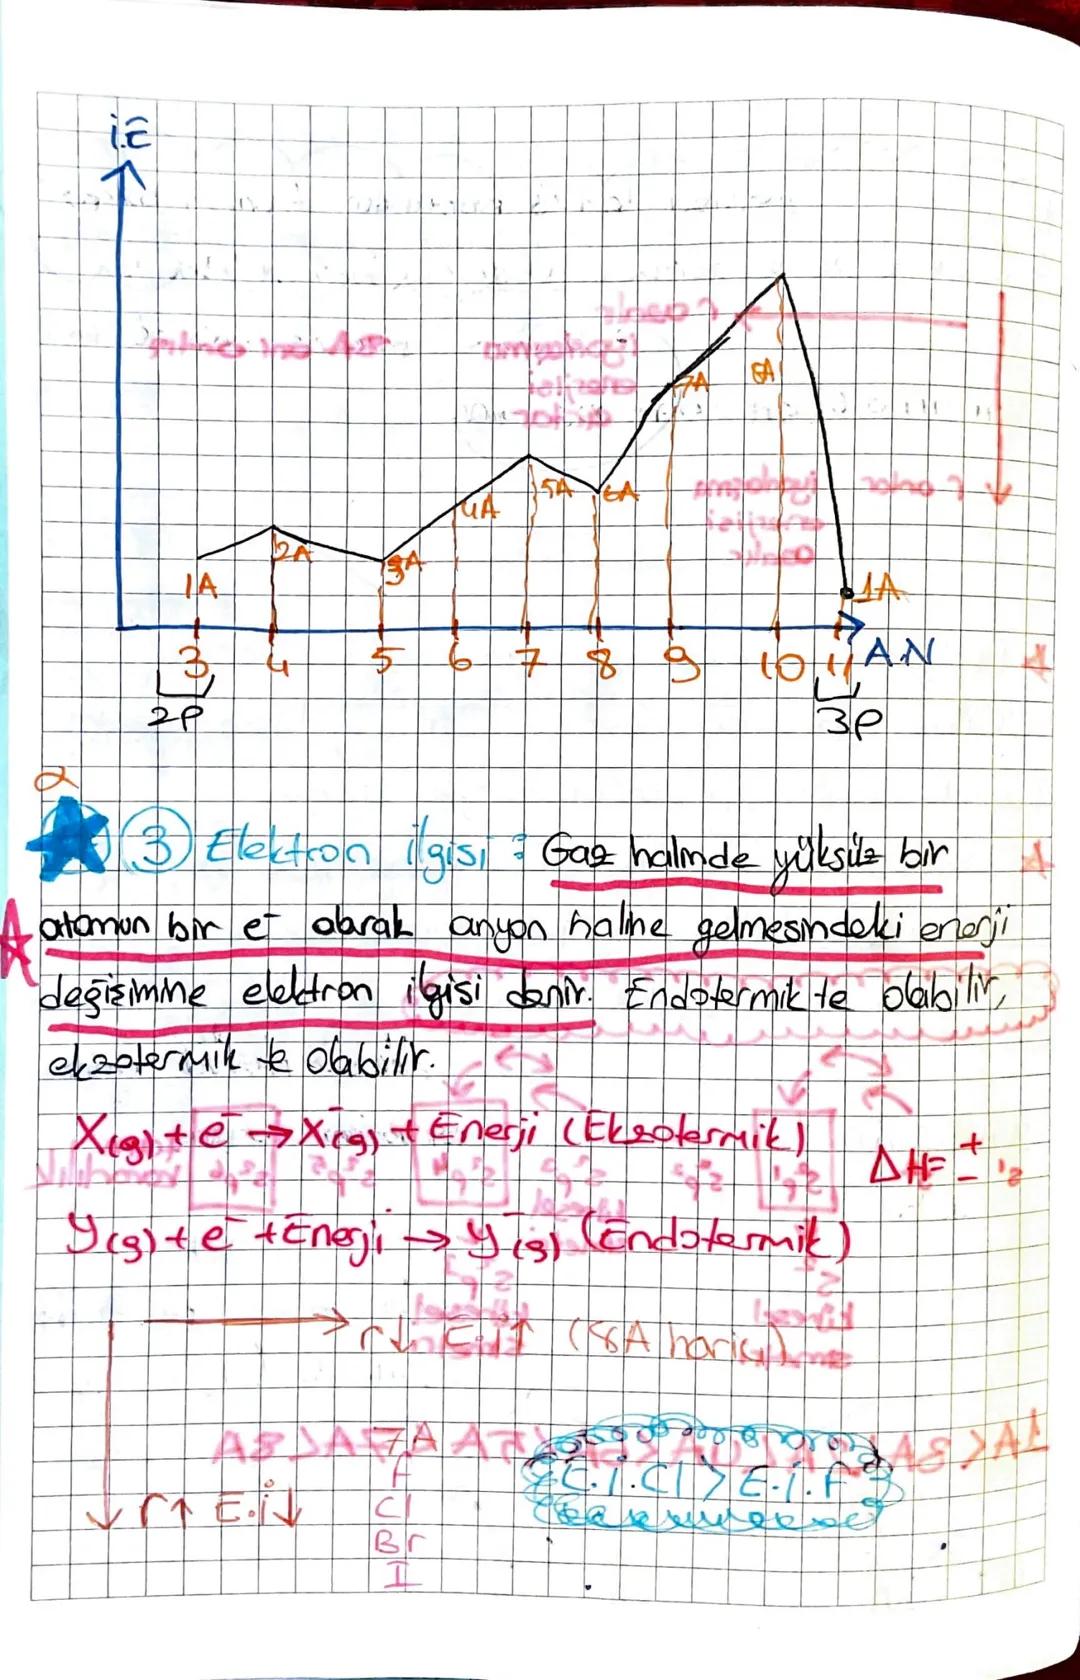 İ.E
7A
8A
5A
6A
4A
2A
3A
1A
1A
3 4 5 6 7 8 9 10 11 A.N
2P 3P
3 Elektron ilgisi : Gaz halinde yüksüz bir
atomun bir e⁻ alarak anyon haline gelmesindeki enerji
değişimine elektron ilgisi denir. Endotermik te olabilir,
ekzotermik te olabilir.
X(g) + e⁻ → X⁻(g) + Enerji (Ekzotermik)
ΔH = ±
Y(g) + e⁻ + Enerji → Y⁻(g) (Endotermik)
r↓ E.i↑ (8A hariç)
7A
F
E.i.Cl > E.i.F
r↑ E.i↓
Cl
Br
I